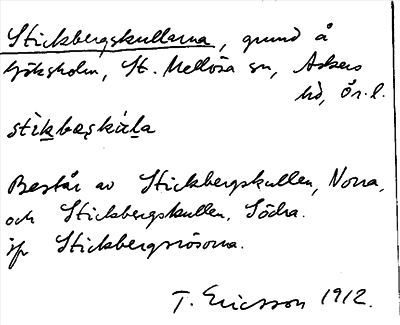 Stickbergskullarna, grund å
Göksholm, St. Mellösa sn, Askers
hd, Ör. l.
stikbæskúla
Består av Stickbergskullen, Norra,
och Stickbergskullen, Södra.
jfr Stickbergsrösorna.
T. Ericsson 1912.